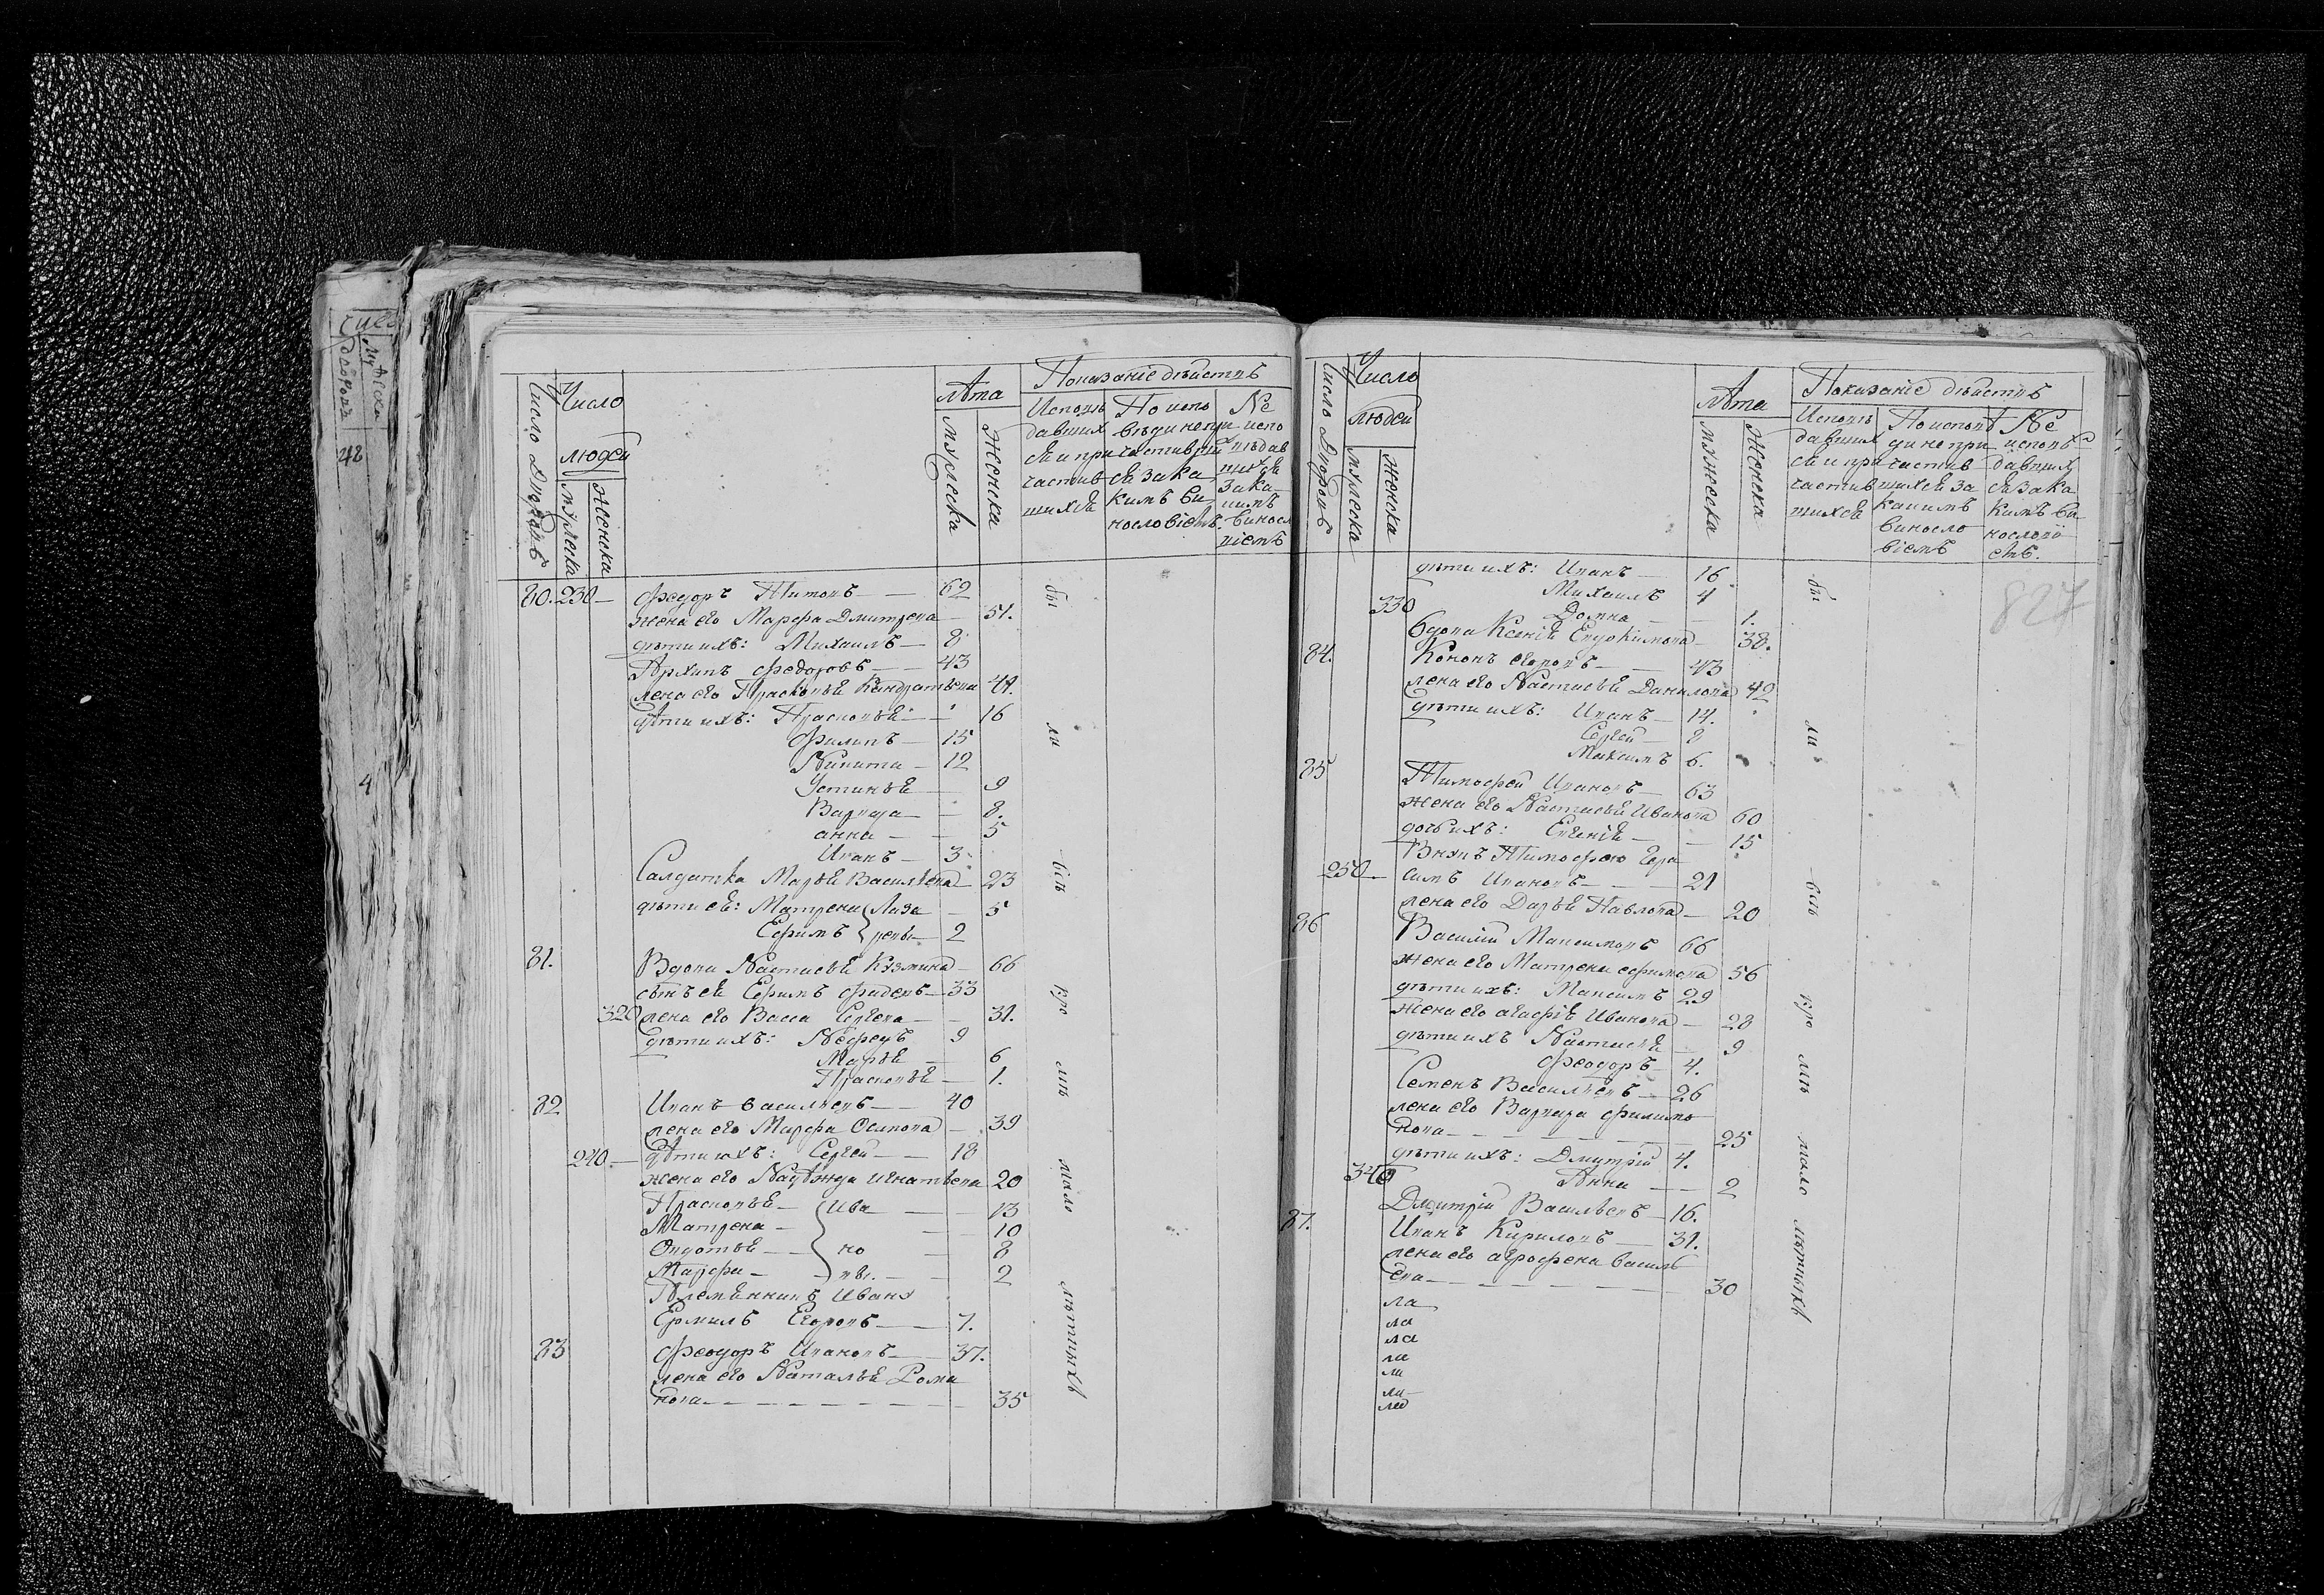 Число Дворовъ
Число
людей
мужеска
женска
Лѣта
мужеска
женска
Показанїе дѣйствъ
Исповѣ
давших
сѧ и при
частив
шихсѧ
По испо
вѣди не при
частив ши
сѧ за ка
кимъ ви
нословїемъ
Не
испо
вѣдав
шихсѧ
за ка
кимъ
винос
вїемъ
80. 230 Федоръ Титовъ 62
жена его Марфа Дмитрева 51.
дѣти ихъ: Михаилъ 8
Архипъ Федоровъ 43
жена его Прасковьѧ Кондратьева 41.
дѣти ихъ: Прасковьѧ 16
Филипъ 15
Никита 12
Устиньѧ 9
Варвара 8.
анна 5
Иванъ 3
Салдатка Марьѧ Васильева 23
дѣти еѧ: Матрена Лаза 5
Ефимъ ревы 2
81. Вдова Настасьѧ Кузмина 66
сынъ еѧ Ефимъ Фадевъ 33
320 жена его Васса Сергева 31.
дѣти ихъ: Нефедъ 9
Марьѧ 6
Прасковьѧ 1.
82 Иванъ васильевъ 40
жена его Марфа Осипова 39
240 дѣти ихъ: Сергей 18
жена его Надѣжда игнатьева 20
Прасковьѧ Ива 13
Матрена 10
Овдотьѧ но 8
Марфа вы. 2
Племѧнникъ Ивану
Ермилъ Егоровъ 7.
83 Феодоръ Ивановъ 37.
жена его Натальѧ Рома
нова 35
бы
ли
бсѣ
кро
мѣ
мало
лѣтныхъ
Число Дворовъ
Число
людей
мужеска
женска
Лѣта
мужеска
женска
Показанїе дѣйствъ
Исповѣ
давших
сѧ и при
частив
шихсѧ
По исповѣ
ди не при
частив
шихсѧ за
какимъ
виносло
вїемъ
Не
исповѣ
давших
сѧ за ка
кимъ ви
нословї
емъ.
827
дѣти ихъ: Иванъ 16
Михаилъ 4
330 Домна 1.
бдова Ксенїѧ Евдокимова 38.
84. Кононъ егоровъ 43
жена его Настасьѧ Данилова 42
дѣти ихъ: Иванъ 14.
Сергей 8
Максимъ 6.
85 Тимофей Ивановъ 63
жена его Настасьѧ Иванова 60
дочь ихъ: Евгенїѧ 15
Внукъ Тимофею Гера
250 симъ Ивановъ 21
жена его Дарьѧ Павлова 20
86 Василїй Максимовъ 66
жена его Матрена ефимова 56
дѣти ихъ: Максимъ 29
жена его агафїѧ Иванова 28
дѣти ихъ Настасьѧ 9
Феодоръ 4.
Семенъ Васильевъ 26
жена его Варвара Филимо
нова 25
дѣти ихъ: Дмитрїй 4.
340 Анна 2
Дмитрїй Васильевъ 16.
87. Иванъ Кириловъ 31.
жена его агрофена василь
ева 30
бы
ли
бсѣ
кро
мѣ
мало
лѣтныхъ